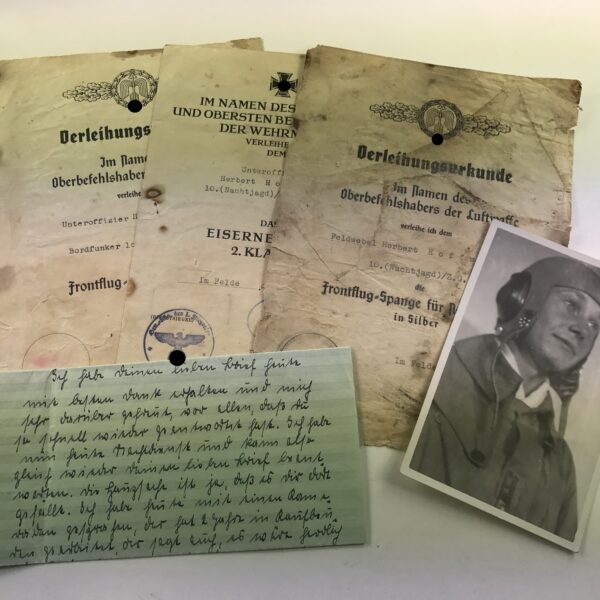 Verleihungs
Im Namen
Oberbefehlshabers
verleihe
Unteroffizier H
Bordfunker 10
Frontflug-
IM NAMEN DES
UND OBERSTEN BE
DER WEHRM
VERLEIHE
DEM
Unteroffi
Herbert Ho
10.(Nachtjagd)/
DAS
EISERNE
2. KLA
Im Felde
Verleihungsurkunde
Im Namen des
Oberbefehlshabers der Luftwaffe
verleihe ich dem
Feldwebel Herbert Hof
10.(Nachtjagd)/Z.G.
die
Frontflug-Spange für
in Silber
Im
Ich habe deinen lieben Brief heute
mit besten dank erhalten und mich
sehr darüber gefreut, vor allen, daß du
so schnell wieder geantwortet hast. Ich habe
nun heute Nachtdienst und kann also
gleich wieder deinen lieben Brief beant
worten. die Hauptsache ist ja, daß es dir dort
gefällt. Ich habe heute mit einen Kame
raden gesprochen, der hat 2 Jahre in Kaufbeu
ren gearbeitet, der sagt auch, es wäre herrlich